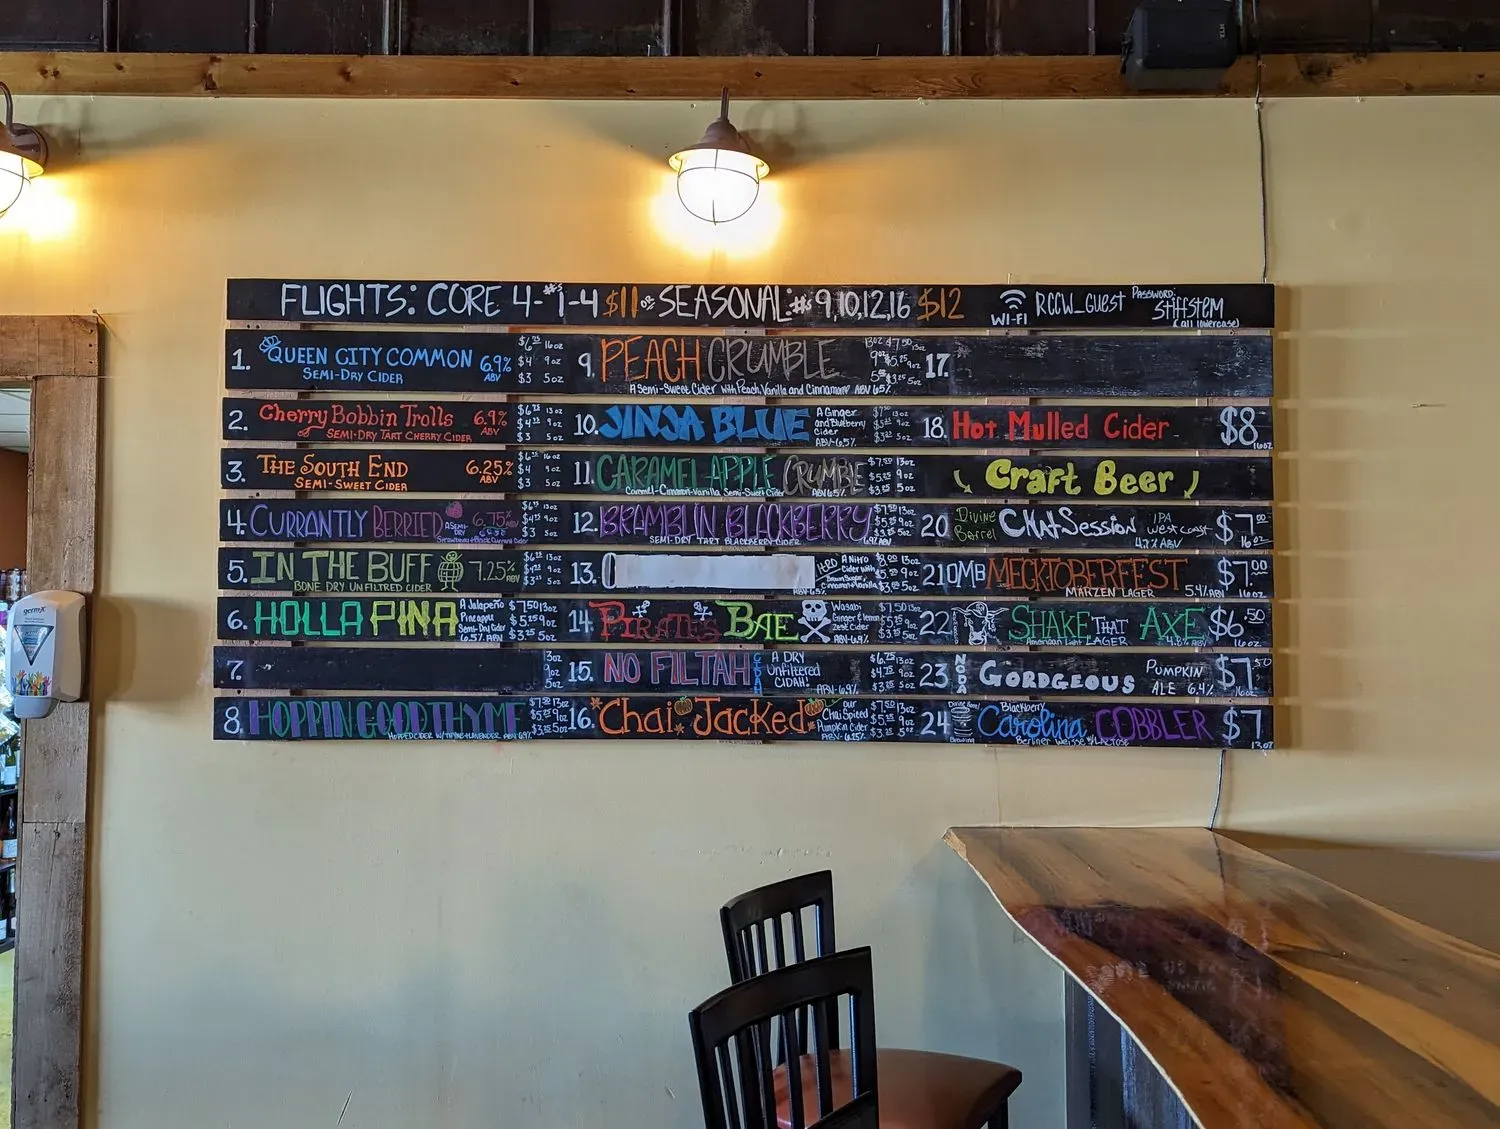 FLIGHTS: CORE 4-#'s 1-4 $11 or SEASONAL: #s 9,10,12,16 $12
WI-FI RCCW_GUEST PASSWORD: Stiffstem
(all lowercase)
1. QUEEN CITY COMMON 6.9% ABV
SEMI-DRY CIDER
$4 9oz
$3 5oz
2. Cherry Bobbin Trolls 6.9% ABV
SEMI-DRY TART CHERRY CIDER
$3 5oz
3. THE SOUTH END 6.25% ABV
SEMI-SWEET CIDER
$4 9oz
$3 5oz
4. CURRANTLY BERRIED 6.75%
$3 5oz
5. IN THE BUFF 7.25% ABV
BONE DRY UNFILTRED CIDER
6. HOLLA PINA A Jalapeño
Pineapple
Semi-Dry Cider
6.5% ABV
$7.50 13oz
$5.25 9oz
$3.25 5oz
7.
13oz
9oz
5oz
8. HOPPIN GOOD THYME
HOPPED CIDER W/ THYME+LAVENDER ABV 6.9%
$7.50 13oz
$5.25 9oz
$3.25 5oz
9. PEACH CRUMBLE
A Semi-Sweet Cider with Peach, Vanilla and Cinnamon ABV 6.5%
10. JINJA BLUE A Ginger
and Blueberry
Cider
ABV-6.5%
11. CARAMEL APPLE CRUMBLE
Caramel-Cinnamon-Vanilla Semi-Sweet Cider ABV 6.5%
$7.50 13oz
$5.25 9oz
$3.25 5oz
12. BRAMBLIN BLACKBERRY
SEMI-DRY TART BLACKBERRY CIDER 6.9% ABV
13. A Nitro
Cider with
Brown Sugar,
Cinnamon+Vanilla
ABV 6.5%
$8.00 13oz
14. PIRATES BAE Wasabi
Ginger & lemon
zest Cider
ABV-6.9%
$7.50 13oz
$5.25 9oz
$3.25 5oz
15. NO FILTAH CIDAH A DRY
Unfiltered
CIDAH!
ABV-6.9%
$6.75 13oz
$4.75 9oz
$3.25 5oz
16. Chai Jacked our
Chai Spiced
Pumpkin Cider
ABV-6.5%
$7.50 13oz
$5.25 9oz
$3.25 5oz
17.
18. Hot Mulled Cider $8 16oz
Craft Beer
20 Divine Barrel CHat Session IPA
West Coast
4.7% ABV
$7.00 16oz
21 OMB MECKTOBERFEST
MARZEN LAGER 5.4% ABV
$7.00 16oz
22 SHAKE THAT AXE
American Light LAGER 4.8% ABV
$6.50 16oz
23 NODA GORDGEOUS PUMPKIN
ALE 6.4%
$7.50 16oz
24 Divine Barrel Brewing Blackberry
Carolina COBBLER
Berliner Weisse w/LACTOSE
$7 13oz
germx